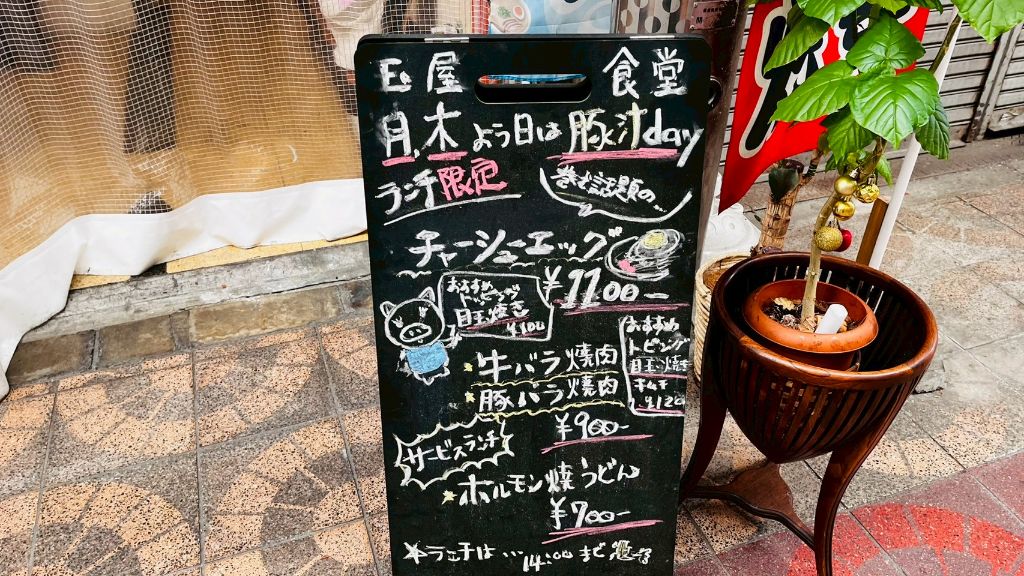 玉屋 食堂
月、木よう日は豚汁day
ランチ限定
巷で話題の…
チャーシューエッグ
¥1100-
おすすめ
トッピング
目玉焼き
¥100
牛バラ焼肉
豚バラ焼肉
¥900-
おすすめ
トピング
目玉焼き
キムチ
サービスランチ
ホルモン焼うどん
¥700-
ランチは…14:00まで